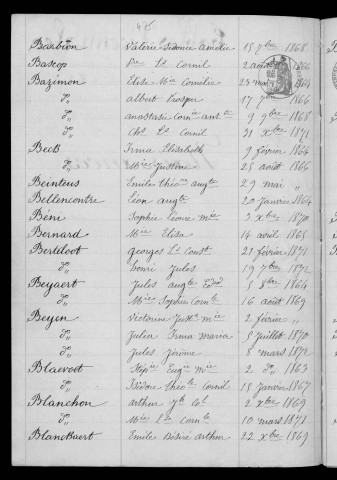 Barbion Valérie Sidonie Amélie 15 7bre 1868
Bascop Pre Ls Cornil 2 août 1866
Bazimon Elise Mie Cornélie 23 mai 1864
do albert Prosper 17 7bre 1866
do anastasie Cornie antte 9 9bre 1868
do Chs Ls Cornil 31 Xbre 1871
Beck Irma Elisabeth 9 février 1864
do Mie Justine 25 août 1866
Beinteus Emile Théore augte 29 mai "
Bellencontre Léon augte 20 Janvier 1864
Béni Sophie Léonie Mie 3 Xbre 1870
Bernard Mie Elisa 14 avril 1865
Berteloot georges Ls Const 21 février 1871
do henri Jules 19 7bre 1872
Beyaert Jules augte Edrd 5 8bre 1864
do Mie Sophie Cornle 16 août 1869
Beyen Victorine Justne Mie 2 février "
do Julia Irma maria 5 Juillet 1870
do Jules Jérôme 8 mars 1872
Blaevoet Stépie Eugie Mie 2 do 1863
do Isidore Théole Cornil 15 Janvier 1867
Blanchon arthur 2 Xbre 1869
do Mie Ls Cornle 10 mars 1871
Blanckaert Emile Désiré Arthur 22 Xbre 1869